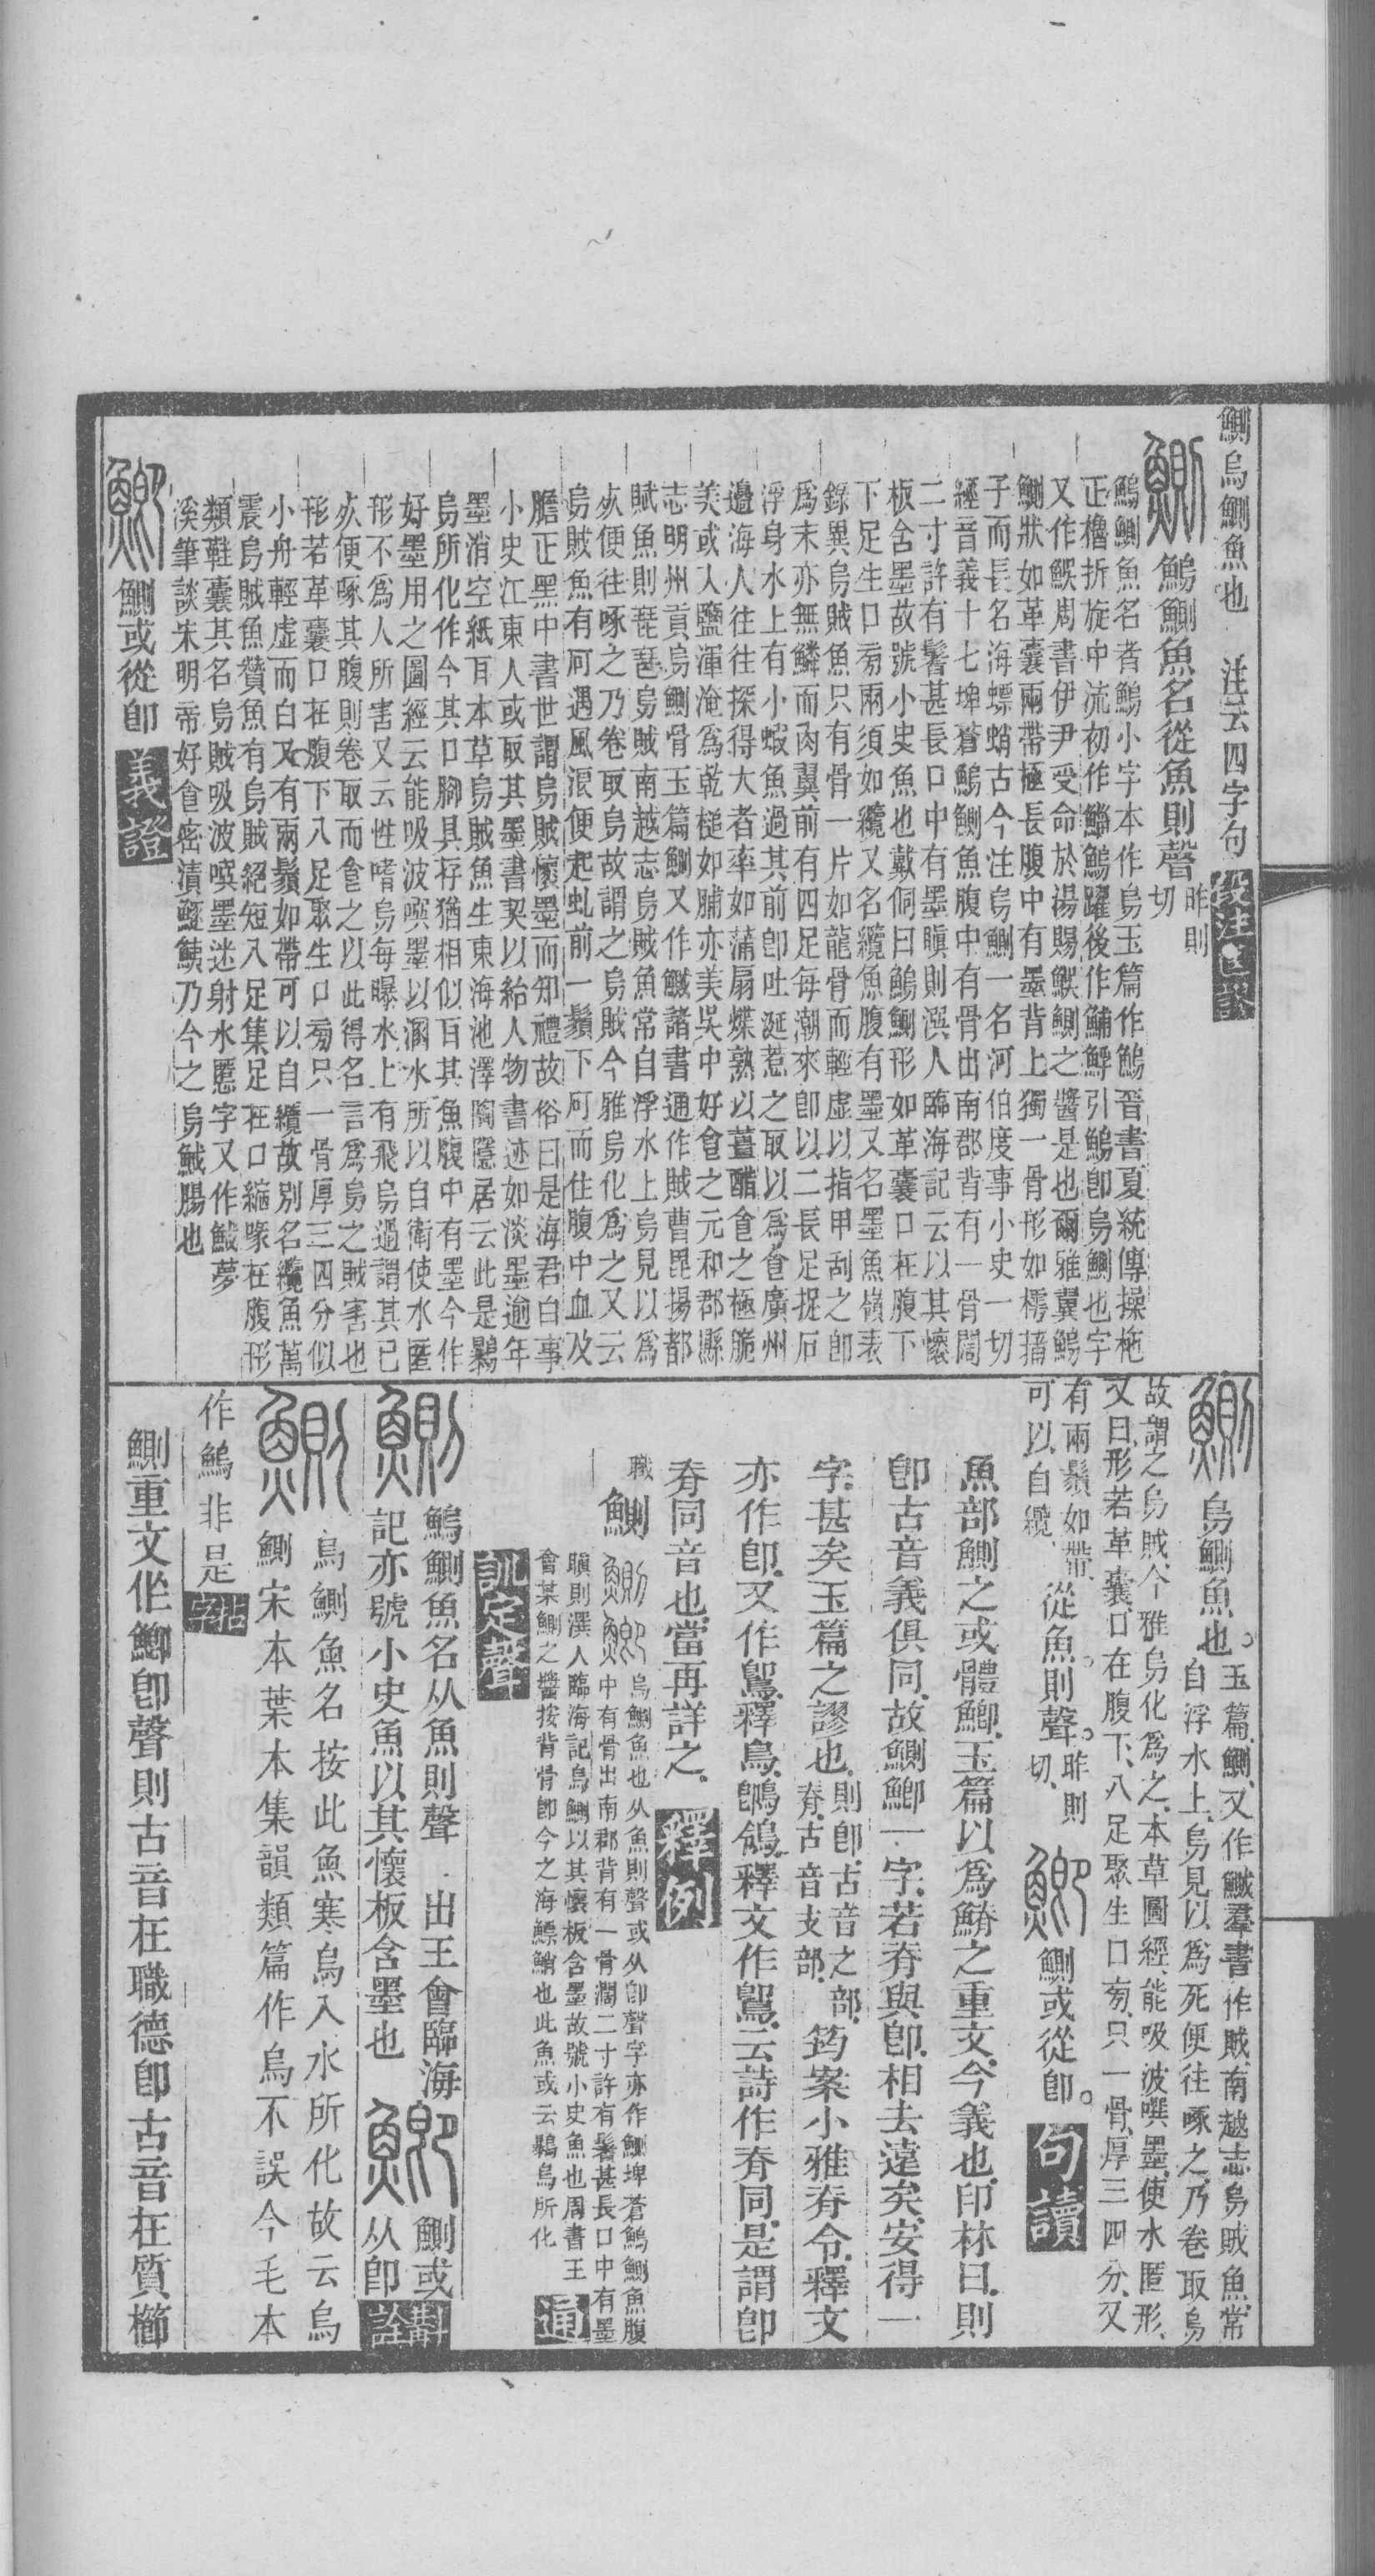 鰂烏鰂魚也 注云四字句 段注匡謬
鰂 鰞鰂魚名從魚則聲 昨則切
鰞鰂魚名者鰞小字本作烏玉篇作鰞晉書夏統傳操柂
正櫓折旋中流初作鯔鰞躍後作鯆䱐引鰞卽烏鰂也字
又作鯸周書伊尹受命於湯賜鯸鰂之醬是也爾雅翼鰞
鰂狀如革囊兩帶極長腹中有墨背上獨一骨形如樗蒱
子而長名海螵蛸古今注烏鰂一名河伯度事小史一切
經音義十七埤蒼鰞鰂魚腹中有骨出南郡背有一骨闊
二寸許有鬐甚長口中有墨瞋則潠人臨海記云以其懷
板含墨故號小史魚也戴侗曰鰞鰂形如革囊口在腹下
下足生口旁兩須如纜又名纜魚腹有墨又名墨魚嶺表
錄異烏賊魚只有骨一片如龍骨而輕虛以指甲刮之卽
爲末亦無鱗而肉翼前有四足每潮來卽以二長足捉石
浮身水上有小蝦魚過其前卽吐涎惹之取以爲食廣州
邊海人往往探得大者率如蒲扇煠熟以薑醋食之極脆
美或入鹽渾淹爲乾槌如脯亦美吳中好食之元和郡縣
志明州貢烏鰂骨玉篇鰂又作鱡諸書通作賊曹毘揚都
賦魚則琵琶烏賊南越志烏賊魚常自浮水上烏見以爲
死便往啄之乃卷取烏故謂之烏賊今雅烏化爲之又云
烏賊魚有矴遇風浪便起虬前一鬚下矴而住腹中血及
膽正黑中書世謂烏賊懷墨而知禮故俗曰是海君白事
小史江東人或取其墨書契以紿人物書迹如淡墨逾年
墨消空紙耳本草烏賊魚生東海池澤陶隱居云此是鸔
烏所化作今其口腳具存猶相似百其魚腹中有墨今作
好墨用之圖經云能吸波噀墨以溷水所以自衛使水匿
形不爲人所害又云性嗜烏每曝水上有飛烏過謂其已
死便啄其腹則卷取而食之以此得名言爲烏之賊害也
形若革囊口在腹下八足聚生口旁只一骨厚三四分似
小舟輕虛而白又有兩鬚如帶可以自纜故別名纜魚萬
震烏賊魚贊魚有烏賊絕短入足集足在口縮喙在腹形
類鞋囊其名烏賊吸波噀墨迷射水慝字又作鱡夢
溪筆談宋明帝好食密漬鱁鮧乃今之烏鱡腸也
鯽 鰂或從卽 義證
鰂 烏鰂魚也。玉篇、鰂、又作鱡、羣書作賊、南越志、烏賊魚、常
自浮水上、烏見以爲死、便往啄之、乃卷取烏、
故謂之烏賊、今雅烏化爲之、本草圖經、能吸波噀墨、使水匿形、
又曰、形若革囊、口在腹下、八足聚生口旁、只一骨、厚三四分、又
有兩鬚如帶、可以自纜、從魚。則聲。昨則切、 鯽 鰂或從卽。 句讀
魚部鰂之或體鯽、玉篇以爲鮨之重文、今義也、印林曰、則
卽古音義俱同、故鰂鯽一字、若脊與卽、相去遠矣、安得一
字、甚矣玉篇之謬也、則卽、古音之部、脊、古音支部、筠案小雅脊令、釋文
亦作卽、又作鴽、釋鳥、鶺鴒、釋文作鴽、云詩作脊同、是謂卽
脊同音也、當再詳之、 釋例
職 鰂 鰂鯽 烏鰂魚也从魚則聲或从卽聲字亦作鰂埤蒼鰞鰂魚腹
中有骨出南郡背有一骨濶二寸許有鬐甚長口中有墨
瞋則潠人臨海記烏鰂以其懷板含墨故號小史魚也周書王
會某鰂之醬按背骨卽今之海鰾鮹也此魚或云鸔烏所化 通
訓定聲
鰂 鰞鰂魚名从魚則聲 出王會臨海
記亦號小史魚以其懷板含墨也 鯽 鰂或从卽 斠詮
鰂 烏鰂魚名按此魚寒烏入水所化故云烏
鰂宋本葉本集韻類篇作烏不誤今毛本
作鰞非是 拈字
鰂重文作鯽卽聲則古音在職德卽古音在質櫛